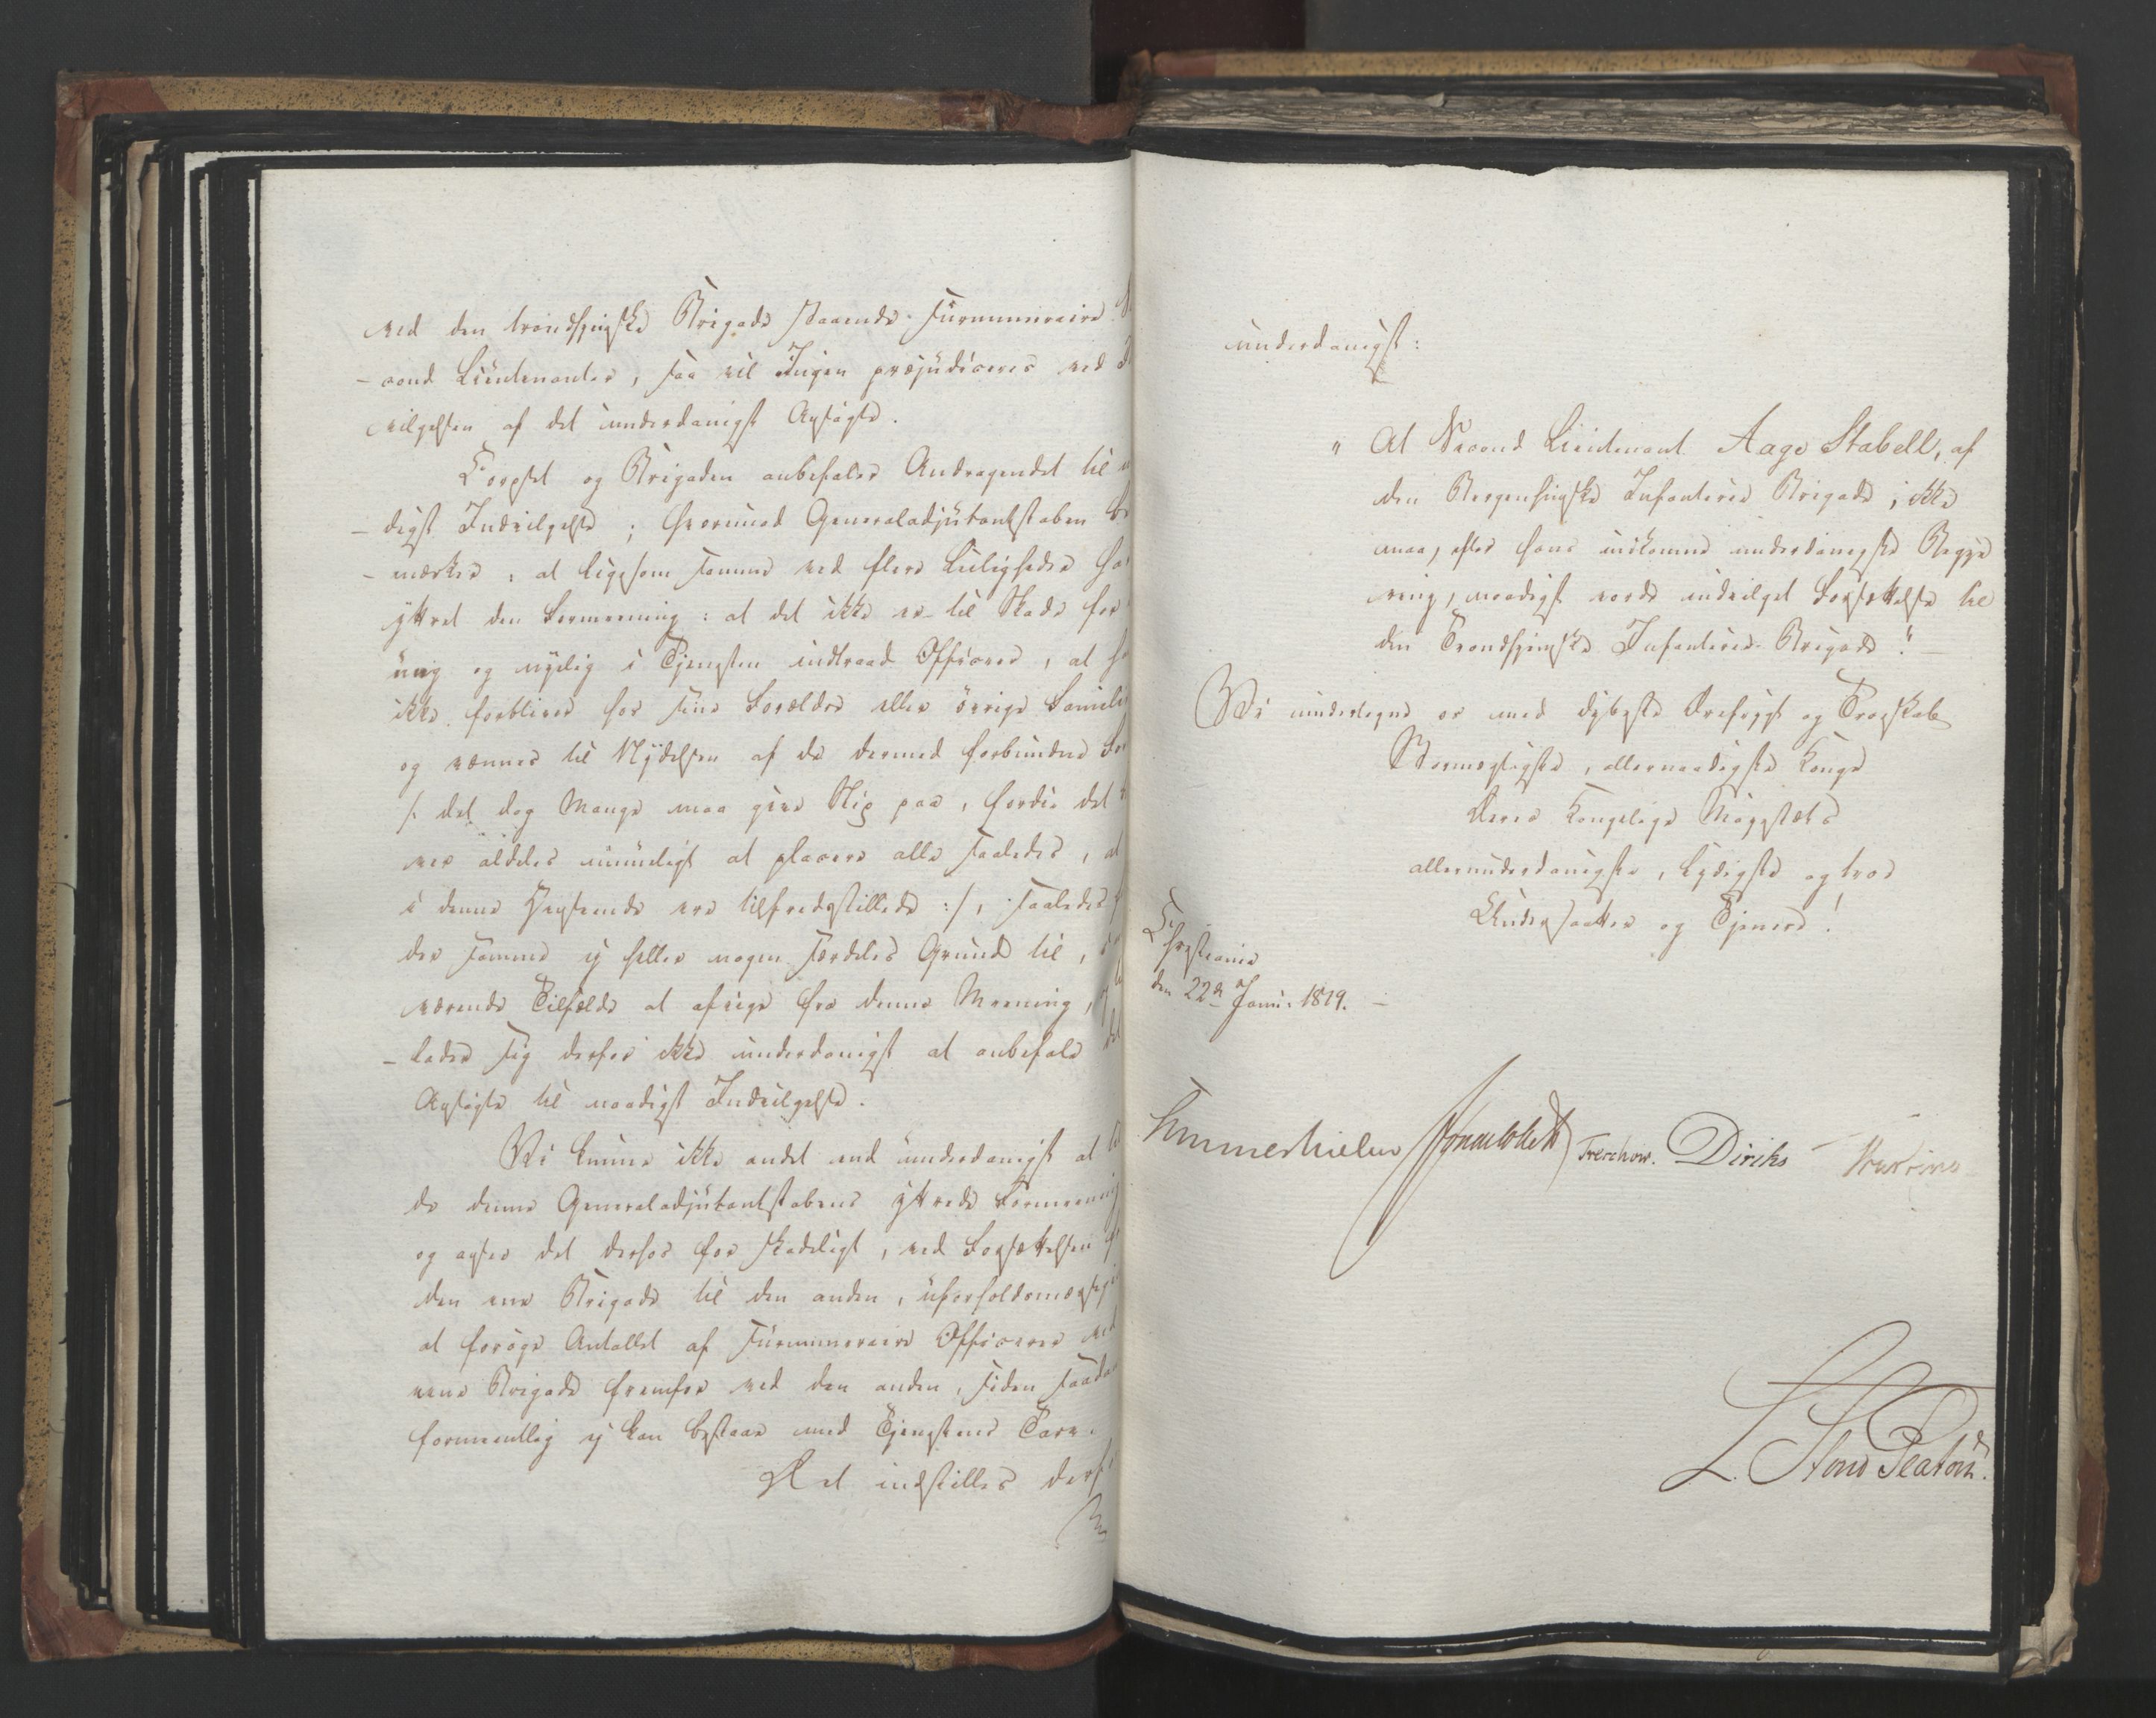 ved den trondhjemske Brigade staaende Surnumeraire
-cond Lieutenanter, saa vil Ingen præjudiceres ved
vilgelsen af det underdanigst Ansøgte.
Corpset og Brigaden anbefaler Andragendet til
-digst Indvilgelse; hvorimod Generaladjutantstaben be
-mærker: at ligesom samme ved flere Leiligheder har
yttret den Formeening: at det ikke er til Skade for
ung og nylig i Tjenesten indtraad Officeer, at
ikke forbliver hos sine Forældre eller øvrige Familie
og vænnes til Nydelsen af de dermed forbundne
/: det dog Mange maa give Slip paa, fordi det
var aldeles umueligt at placere alle saaledes, at
i denne Henseende ere tilfredsstillede :/, saaledes
der samme ej heller nogen særdeles Grund til, i
værende Tilfælde at afvige fra denne Meening, og
-lader sig derfor ikke underdanigst at anbefale det
Ansøgte til naadigst Indvilgelse.
Vi kunne ikke andet end underdanigst at
de denne Generaladjutantstabens yttrede Formeening
og anseer det derhos for skadeligt, ved Forsættelsen
den ene Brigade til den anden, uforholdsmæssig
at forøge Antallet af Surnumeraire Officerer ved
eene Brigade fremfor ved den anden, siden saadant
formeentlig ej kan bestaae med Tjenestens Tarv.
Det indstilles derfor
underdanigst:
" At Second Lieutenant Aage Stabell, af
den Bergenhusske Infanterie Brigade, ikke
maa, efter hans indkomne underdanigste Begjæ
ring, naadigst vorde indvilget Forsættelse til
den Trondhjemske Infanterie-Brigade." -
Vi undertegne os med dybeste Ærefrygt og Troskab
Stormægtigste, allernaadigste Konge
Deres Kongelige Majestæts
allerunderdanigste, lydigste og troe
Undersaatter og Tjenere!
Christiania
den 22de Janu: 1819. -
Sommerhielm Treschow. Diriks
L. Stoud Platou.